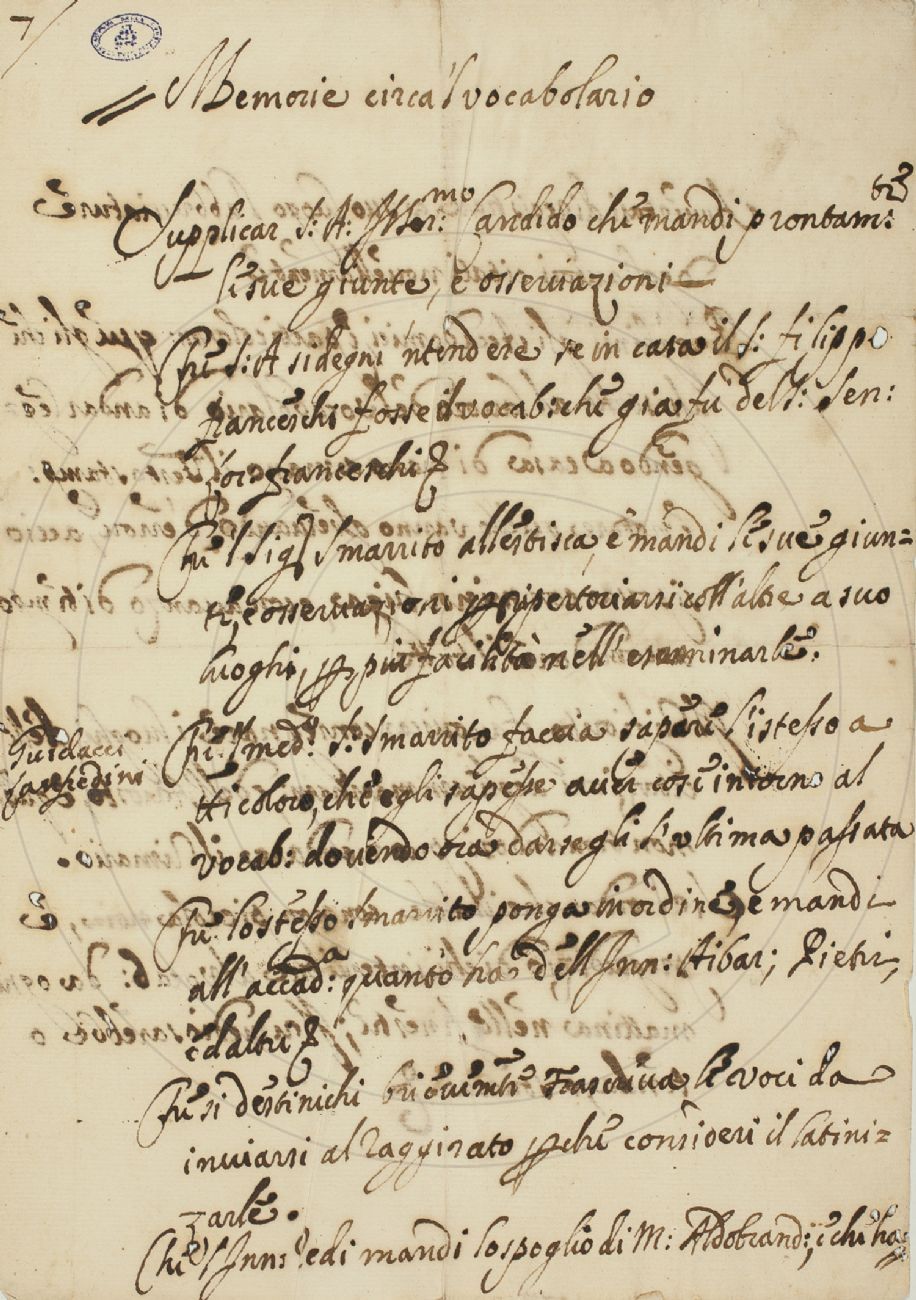 7
Memorie circa 'l vocabolario
Supplicar S: A: Ser:mo Candido che mandi prontam:te
le sue giunte, e osservazioni
Che S: A si degni 'ntendere se in casa il S: Filippo
Franceschi fosse il vocab: che già fù del S: Sen:
Franceschi
Che 'l Sig.r Smarrito allestisca, e mandi le sue giun=
te, e osservazioni p ripertoriarsi coll'altre a suo
luoghi, p più facilità nell'esaminarle.
Guiducci
Sanfedini
Che 'l med:o S: Smarrito faccia sapere l'istesso a
che egli sapesse aver cose intorno al
vocab: dovendo ora darsegli l'ultima passata
Che lo stesso Smarrito ponga in ordine, e mandi
all'accad:a quanto ha dell'Inn: Pieri,
ed altri
Che si destini chi brevemte trascriva le voci da
inviarsi al Raggirato pche consideri il latini=
zarle.
Che 'l Inn: Redi mandi lo spoglio di M: Aldobrand:, che ha